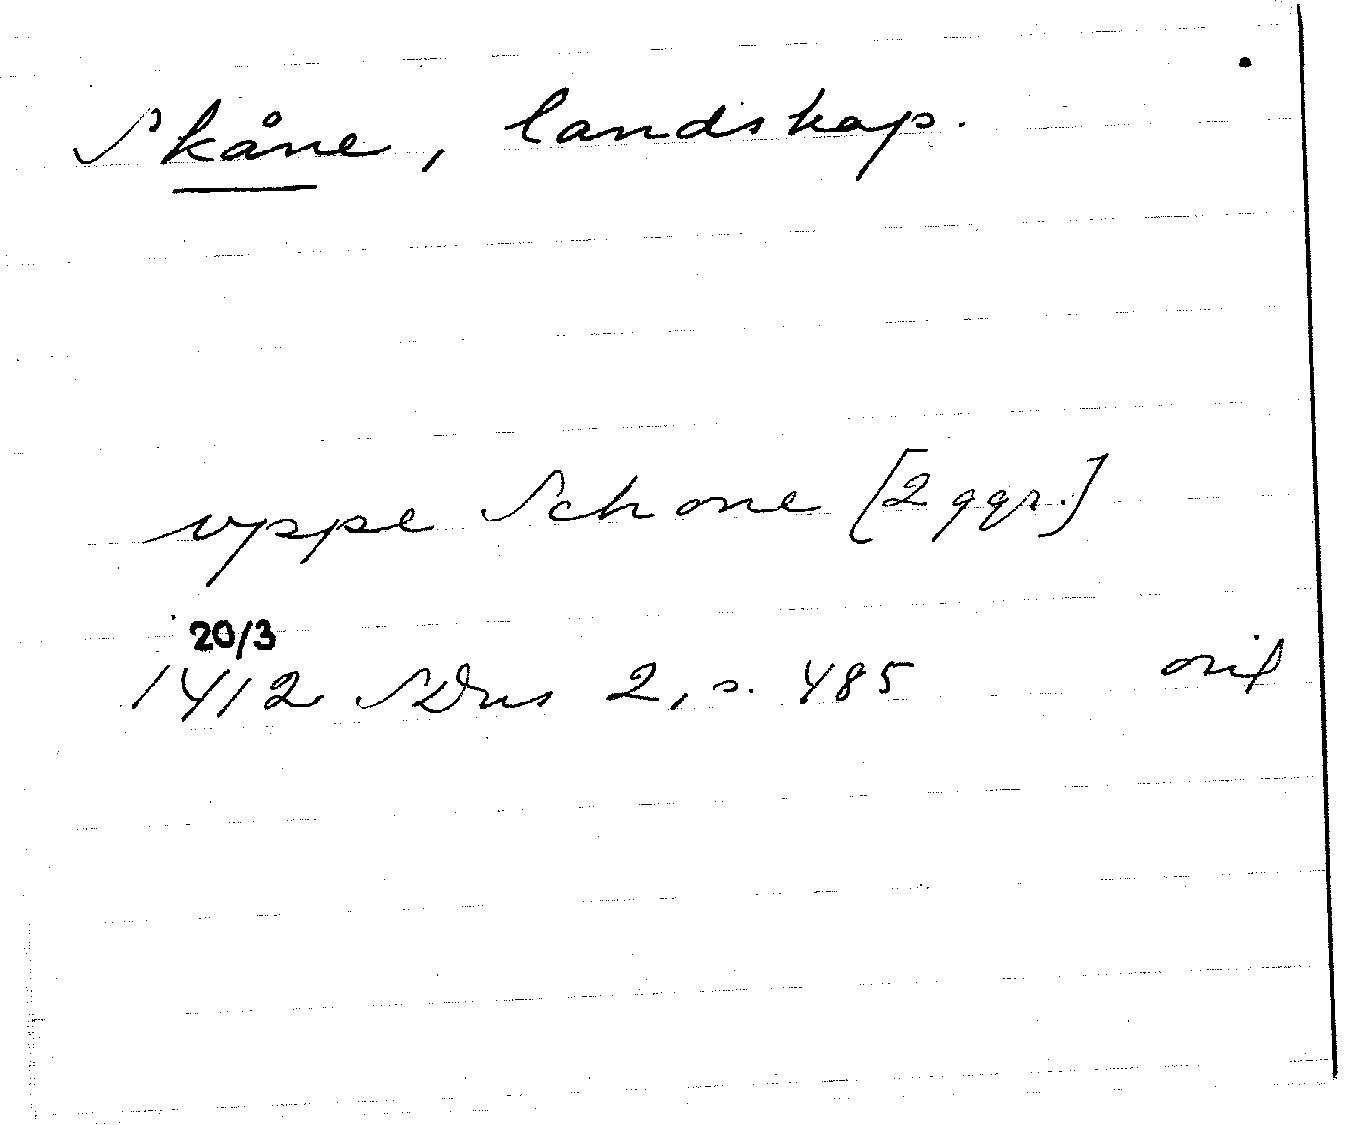 Skåne, landskap.
uppe Schone [2 ggr.]
20/3
1412 SDns 2, s. 485 orig